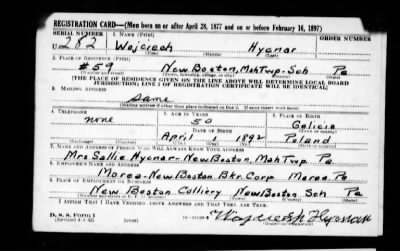 REGISTRATION CARD—(Men born on or after April 28, 1877 and on or before February 16, 1897)
SERIAL NUMBER 1. NAME (Print) ORDER NUMBER
U 282 Wojciech Hycnar
(First) (Middle) (Last)
2. PLACE OF RESIDENCE (Print)
#59 New Boston, Mah Twp. Sch Pa
(Number and street) (Town, township, village, or city) (County) (State)
[THE PLACE OF RESIDENCE GIVEN ON THE LINE ABOVE WILL DETERMINE LOCAL BOARD
JURISDICTION; LINE 2 OF REGISTRATION CERTIFICATE WILL BE IDENTICAL]
3. MAILING ADDRESS
same
[Mailing address if other than place indicated on line 2. If same insert word same]
4. TELEPHONE 5. AGE IN YEARS 6. PLACE OF BIRTH
none 50 Galicia
DATE OF BIRTH (Town or county)
April 1 1892 Poland
(Exchange) (Number) (Mo.) (Day) (Yr.) (State or country)
7. NAME AND ADDRESS OF PERSON WHO WILL ALWAYS KNOW YOUR ADDRESS
Mrs Sallie Hycnar-New Boston, Mah Twp Pa
8. EMPLOYER'S NAME AND ADDRESS
Morea-New Boston Bkr. Corp Morea Pa
9. PLACE OF EMPLOYMENT OR BUSINESS
New Boston Colliery New Boston Sch Pa
(Number and street or R. F. D. number) (Town) (County) (State)
I AFFIRM THAT I HAVE VERIFIED ABOVE ANSWERS AND THAT THEY ARE TRUE.
D. S. S. Form 1
(Revised 4-1-42) Wojciech Hycnar